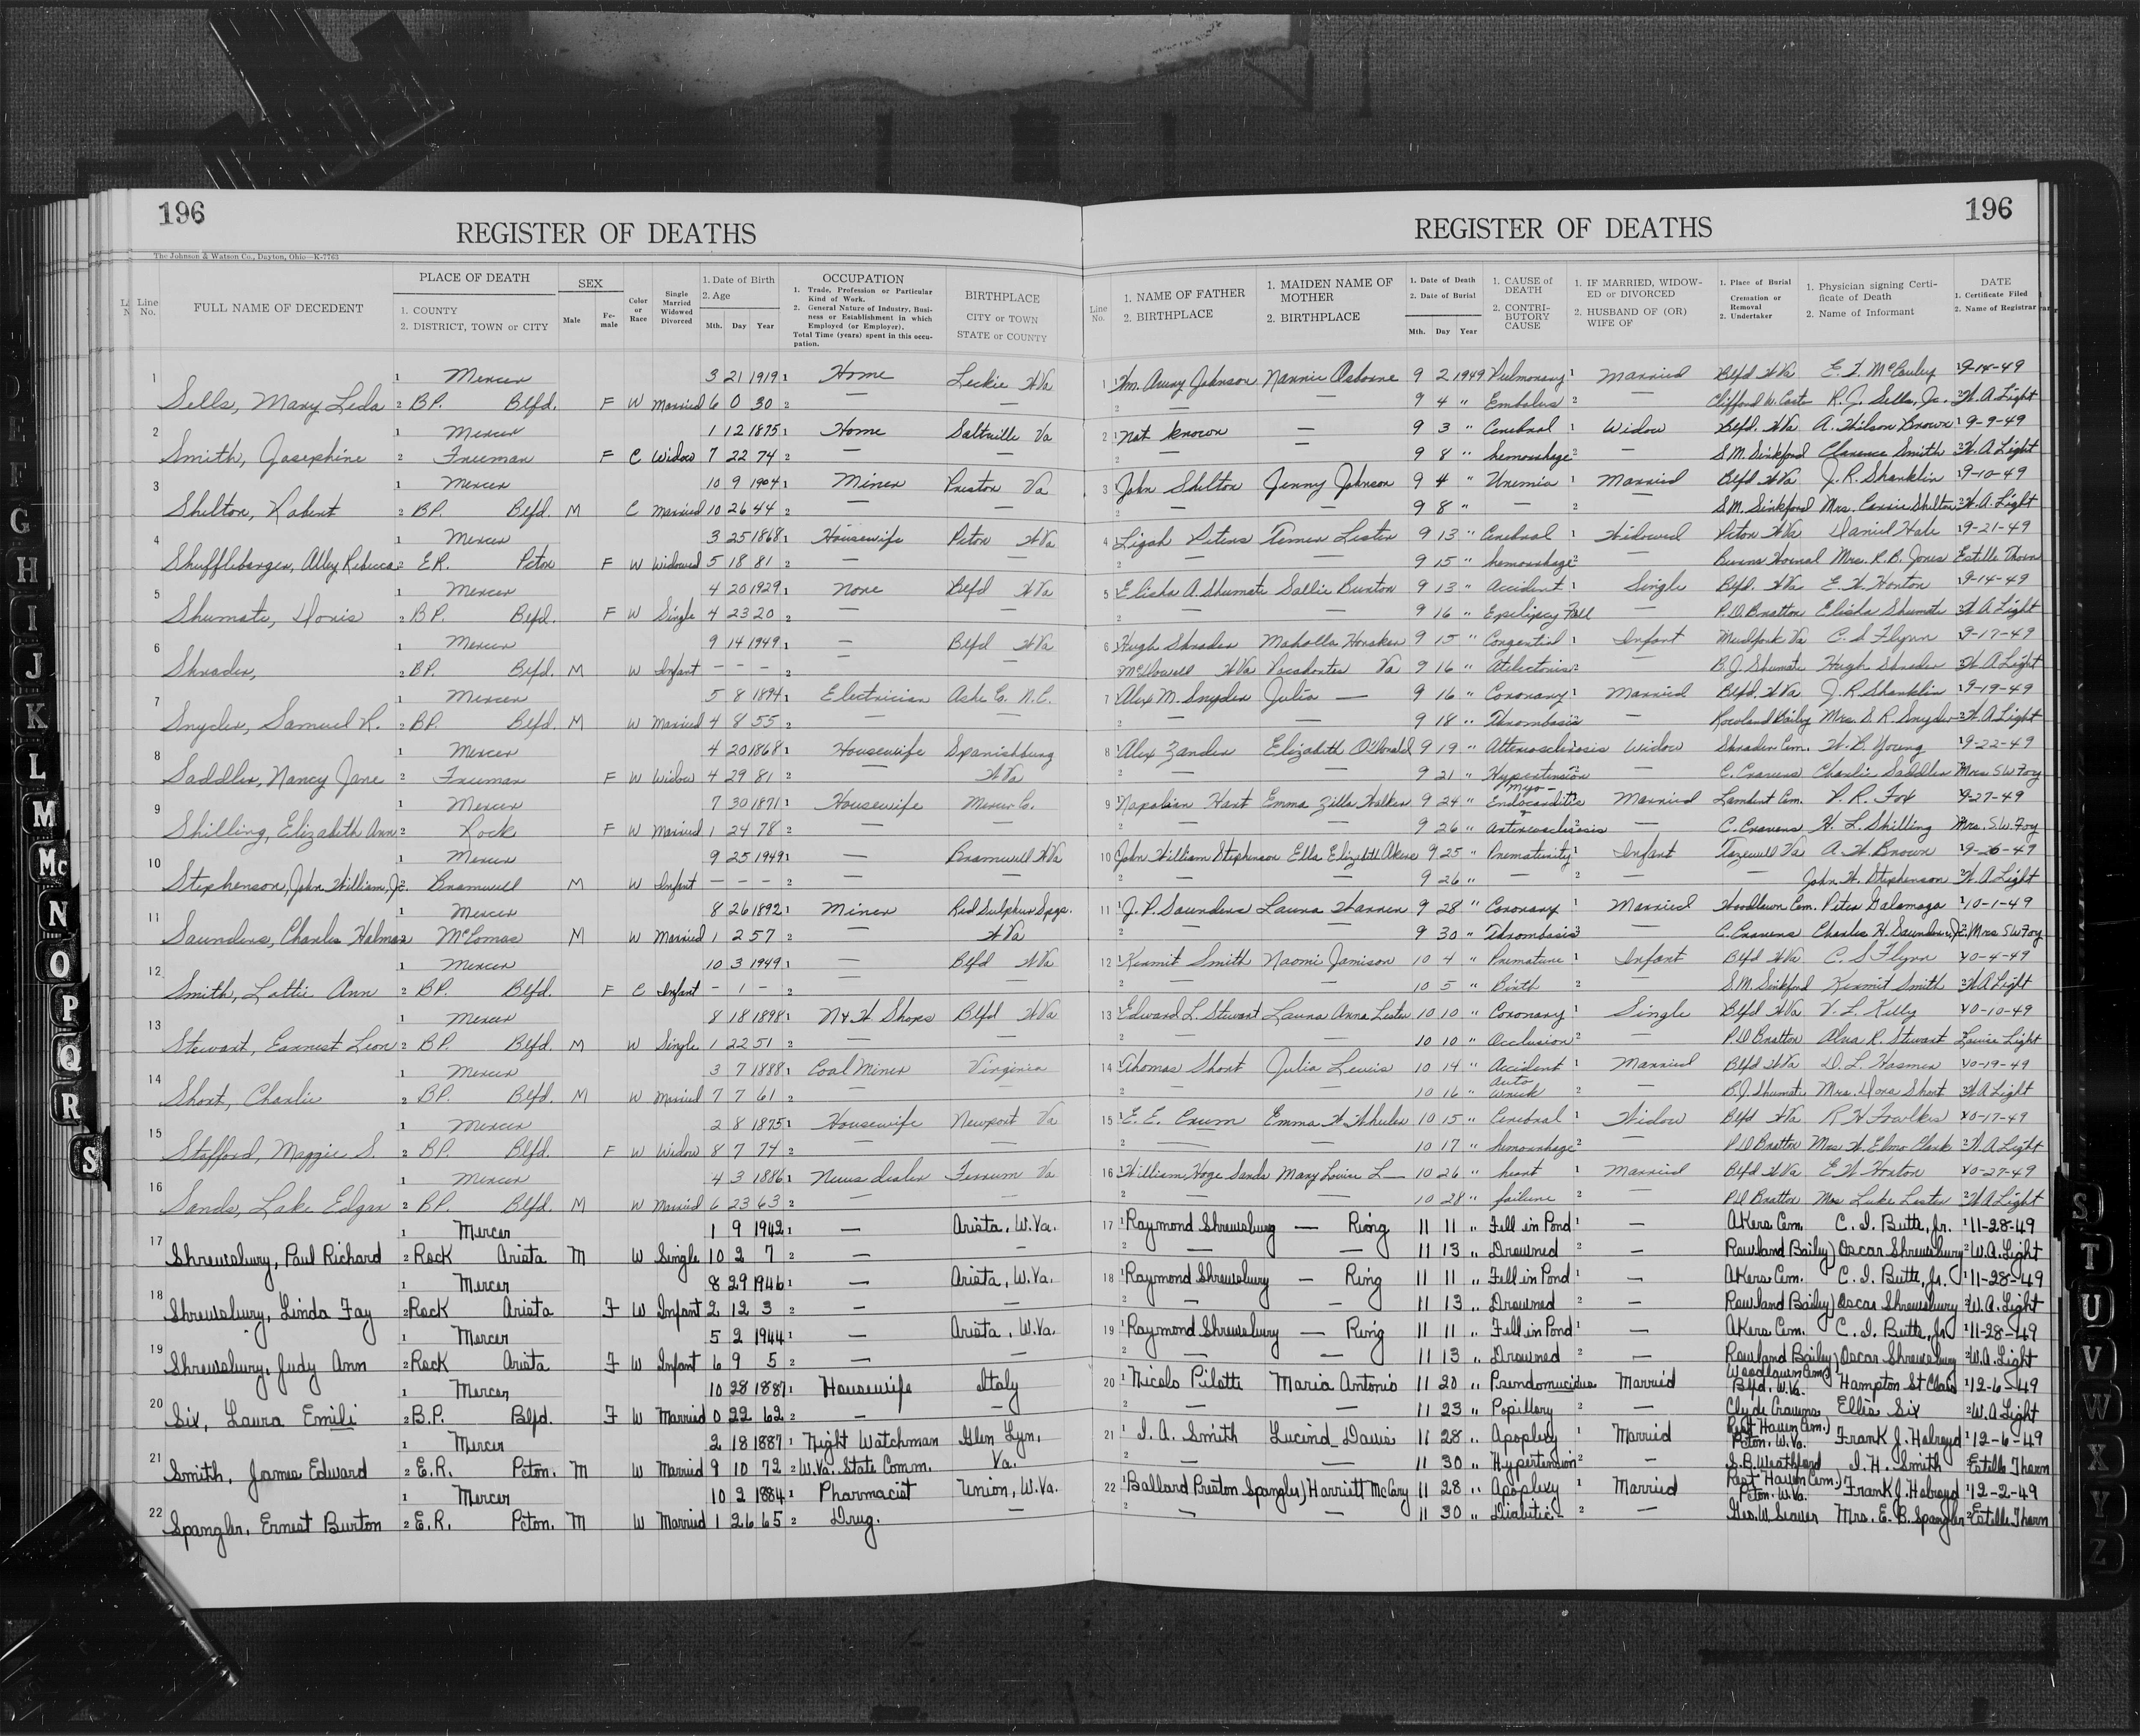 196
REGISTER OF DEATHS
The Johnson & Watson Co., Dayton, Ohio—K-7763
Line No.
FULL NAME OF DECEDENT
PLACE OF DEATH
1. COUNTY
2. DISTRICT, TOWN or CITY
SEX
Male
Female
Color or Race
Single Married Widowed Divorced
1. Date of Birth
2. Age
Mth. Day Year
OCCUPATION
1. Trade, Profession or Particular Kind of Work.
2. General Nature of Industry, Business or Establishment in which Employed (or Employer).
Total Time (years) spent in this occupation.
BIRTHPLACE
CITY or TOWN
STATE or COUNTY
1 1 Mercer 3 21 1919 1 Home Leckie W Va
Sells, Mary Leda 2 B.P. Blfd. F W Married 6 0 30 2 — —
2 1 Mercer 1 12 1875 1 Home Saltville Va
Smith, Josephine 2 Freeman F C Widow 7 22 74 2 — —
3 1 Mercer 10 9 1904 1 Miner Preston Va
Shelton, Robert 2 B.P. Blfd. M C Married 10 26 44 2 — —
4 1 Mercer 3 25 1868 1 Housewife Pcton W Va
Shufflebarger, Alley Rebecca 2 E.R. Pcton F W Widowed 5 18 81 2 —
5 1 Mercer 4 20 1929 1 None Blfd W Va
Shumate, Doris 2 B.P. Blfd. F W Single 4 23 20 2
6 1 Mercer 9 14 1949 1 — Blfd W Va
Shrader, 2 B.P. Blfd. M W Infant — — — 2 —
7 1 Mercer 5 8 1894 1 Electrician Ashe Co. N.C.
Snyder, Samuel R. 2 B.P. Blfd. M W Married 4 8 55 2 — —
8 1 Mercer 4 20 1868 1 Housewife Spanishburg
Saddler, Nancy Jane 2 Freeman F W Widow 4 29 81 2 — W Va
9 1 Mercer 7 30 1871 1 Housewife Mercer Co.
Shilling, Elizabeth Ann 2 Rock F W Married 1 24 78 2 — —
10 1 Mercer 9 25 1949 1 — Bramwell W Va
Stephenson, John William, Jr. 2 Bramwell M W Infant — — — 2 — —
11 1 Mercer 8 26 1892 1 Miner Red Sulphur Spgs.
Saunders, Charles 2 McComas M W Married 1 2 57 2 — W Va
12 1 Mercer 10 3 1949 1 — Blfd W Va
Smith, Lottie Ann 2 B.P. Blfd. F C Infant — 1 — 2 — —
13 1 Mercer 8 18 1898 1 N & W Shops Blfd W Va
Stewart, Earnest Leon 2 B.P. Blfd. M W Single 1 22 51 2 — —
14 1 Mercer 3 7 1888 1 Coal Miner Virginia
Short, Charlie 2 B.P. Blfd. M W Married 7 7 61 2 — —
15 1 Mercer 2 8 1875 1 Housewife Newport Va
Stafford, Maggie S. 2 B.P. Blfd. F W Widow 8 7 74 2 — —
16 1 Mercer 4 3 1886 1 News dealer Ferrum Va
Sands, Lake Edgar 2 B.P. Blfd. M W Married 6 23 63 2 — —
17 1 Mercer 1 9 1942 1 — Arista, W.Va.
Shrewsbury, Paul Richard 2 Rock Arista M W Single 10 2 7 2 — —
18 1 Mercer 8 29 1946 1 — Arista, W.Va.
Shrewsbury, Linda Fay 2 Rock Arista F W Infant 2 12 3 2 — —
19 1 Mercer 5 2 1944 1 — Arista, W.Va.
Shrewsbury, Judy Ann 2 Rock Arista F W Infant 6 9 5 2 — —
20 1 Mercer 10 28 1887 1 Housewife Italy
Six, Laura Emili 2 B.P. Blfd. F W Married 0 22 62 2 — —
21 1 Mercer 2 18 1887 1 Night Watchman Glen Lyn,
Smith, James Edward 2 E.R. Pcton. M W Married 9 10 72 2 W.Va. State Comm. Va.
22 1 Mercer 10 2 1884 1 Pharmacist Union, W.Va.
Spangler, Ernest Burton 2 E.R. Pcton. M W Married 1 26 65 2 Drug. —
196
REGISTER OF DEATHS
Line No.
1. NAME OF FATHER
2. BIRTHPLACE
1. MAIDEN NAME OF MOTHER
2. BIRTHPLACE
1. Date of Death
2. Date of Burial
Mth. Day Year
1. CAUSE of DEATH
2. CONTRIBUTORY CAUSE
1. IF MARRIED, WIDOWED or DIVORCED
2. HUSBAND OF (OR) WIFE OF
1. Place of Burial Cremation or Removal
2. Undertaker
1. Physician signing Certificate of Death
2. Name of Informant
DATE
1. Certificate Filed
2. Name of Registrar
1 1 Wm. Johnson Nannie Osborne 9 2 1949 Pulmonary 1 Married Blfd W Va E. F. McCauley 1 9-14-49
2 — — 9 4 " Embolus 2 — Clifford W. R. J. Sells, Jr. 2 W. A. Light
2 1 Not known — 9 3 " Cerebral 1 Widow Blfd. W Va A. Wilson Brown 1 9-9-49
2 — 9 8 " hemorrhage 2 — S. M. Sinkford Clarence Smith 2 W. A. Light
3 1 John Shelton Jenny Johnson 9 4 " Uremia 1 Married Blfd W Va J. R. Shanklin 1 9-10-49
2 — — 9 8 " — 2 — S.M. Sinkford Mrs. Carrie Shelton 2 W. A. Light
4 1 Ligah Peters Lester 9 13 " Cerebral 1 Widowed Pcton W Va Daniel Hale 1 9-21-49
2 — — 9 15 " hemorrhage 2 — Mrs. R. B. Jones Estelle Thorn
5 1 Elisha A. Shumate Sallie Burton 9 13 " Accident 1 Single Blfd. W Va E. W. Horton 1 9-14-49
2 — — 9 16 " Epilipscy Fall — P. D. Bratton Elisha Shumate 2 W A Light
6 1 Hugh Shrader Mahalla Honaker 9 15 " Congential 1 Infant Va C. S Flynn 1 9-17-49
McDowell W Va Pocahontas Va 9 16 " Atelectonis 2 — B. J. Shumate Hugh Shrader 2 W. A Light
7 1 Alex M. Snyder Julia — 9 16 " Coronary 1 Married Blfd. W Va J. R Shanklin 1 9-19-49
2 — — 9 18 " Thrombosis 2 — Rowland Bailey Mrs. S. R Snyder 2 W. A Light
8 1 Alex Zander Elizabeth O'Donald 9 19 " Atterosclerosis Widow Shrader Cem. W. B. Young 1 9-22-49
2 — — 9 21 " Hypertension — C. Cravens Charlie Saddler Mrs. S W Foy
9 1 Napolian Hart Emma Zilla Walker 9 24 " Myo- Endocarditis Married Lambert Cem. V. R. Fox 1 9-27-49
2 — — 9 26 " Arteriosclerosis — C. Cravens H. L. Shilling Mrs. S. W Foy
10 1 John William Stephenson Ella Elizabeth Akers 9 25 " Prematurity 1 Infant Tazewell Va A. W. Brown 1 9-26-49
2 — — 9 26 " — 2 — — John W. Stephenson 2 W. A Light
11 1 J. P. Saunders Laura Warren 9 28 " Coronary 1 Married Woodlawn Cem. Peter Galamaga 1 10-1-49
2 — — 9 30 " Thrombosis 2 — C. Cravens Charles H. Saunders, Jr. 2 Mrs S W Foy
12 1 Kermit Smith Naomi Jamison 10 4 " Premature 1 Infant Blfd W Va C. S Flynn 1 10-4-49
2 — — 10 5 " Birth 2 — S. M. Sinkford Kermit Smith 2 W A Light
13 1 Edward L. Stewart Laura Anna Lester 10 10 " Coronary 1 Single Blfd W Va V. L. Kelly 1 10-10-49
2 — — 10 10 " Occlusion 2 — P D Bratton Alva R. Stewart Louise Light
14 1 Thomas Short Julia Lewis 10 14 " Accident 1 Married Blfd W Va D. L. Hasmer 1 10-19-49
2 — — 10 16 " auto wreck 2 — B. J. Shumate Mrs. Dora Short 2 W A Light
15 1 E. E. Crum Emma W. Wheeler 10 15 " Cerebral 1 Widow Blfd W Va R H Fowlkes 1 10-17-49
2 — — 10 17 " hemorrhage 2 — P D Bratton Mrs W. Elmo Clark 2 W. A Light
16 1 William Hoge Sands Mary Louise L— 10 26 " heart 1 Married Blfd W Va E W Horton 1 10-27-49
2 — — 10 28 " failure 2 — P D Bratton Mrs Luke Lester 2 W A Light
17 1 Raymond Shrewsbury — Ring 11 11 " Fell in Pond 1 — Akers Cem. C. I. Butte, Jr. 1 11-28-49
2 — — 11 13 " Drowned 2 — Rowland Bailey) Oscar Shrewsbury 2 W. A. Light
18 1 Raymond Shrewsbury — Ring 11 11 " Fell in Pond 1 — Akers Cem. C. I. Butte, Jr. 1 11-28-49
2 — — 11 13 " Drowned 2 — Rowland Bailey) Oscar Shrewsbury 2 W. A. Light
19 1 Raymond Shrewsbury — Ring 11 11 " Fell in Pond 1 — Akers Cem. C. I. Butte, Jr. 1 11-28-49
2 — — 11 13 " Drowned 2 — Rowland Bailey) Oscar Shrewsbury 2 W. A. Light
20 1 Nicolo Pilotte Maria Antonio 11 20 " Psendomucidus Married Woodlawn Cem.) Blfd. W.Va. Hampton St Clair 1 12-6-49
— — 11 23 " Popillary 2 — Clyde Cravens Ellis Six 2 W. A Light
21 1 I. A. Smith Lucind_ Davis 11 28 " Apoplexy 1 Married Rest Haven Cem.) Pcton. W.Va. Frank J. Holroyd 1 12-6-49
2 — — 11 30 " Hypertension 2 — S. B. Weathford I. H. Smith Estelle Thorn
22 1 Ballard Preston Spangler) Harriett McCary 11 28 " Apoplexy 1 Married Rest Haven Cem.) Pcton. W.Va. Frank J. Holroyd 1 12-2-49
2 — — 11 30 " Diabetic 2 — Geo. W. Seaver Mrs. E. B. Spangler 2 Estelle Thorn
F
G
H
I
J
K
L
M
Mc
N
O
P
Q
R
S
S
T
U
V
W
X
Y
Z